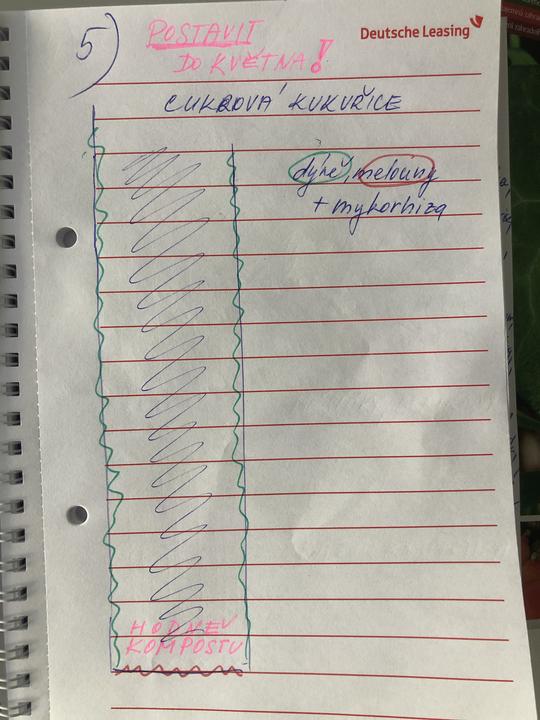 5)
POSTAVIT
DO KVĚTNA!
Deutsche Leasing
CUKROVÁ KUKUŘICE
dýně, melouny
+ mykorhiza
HODNĚ
KOMPOSTU